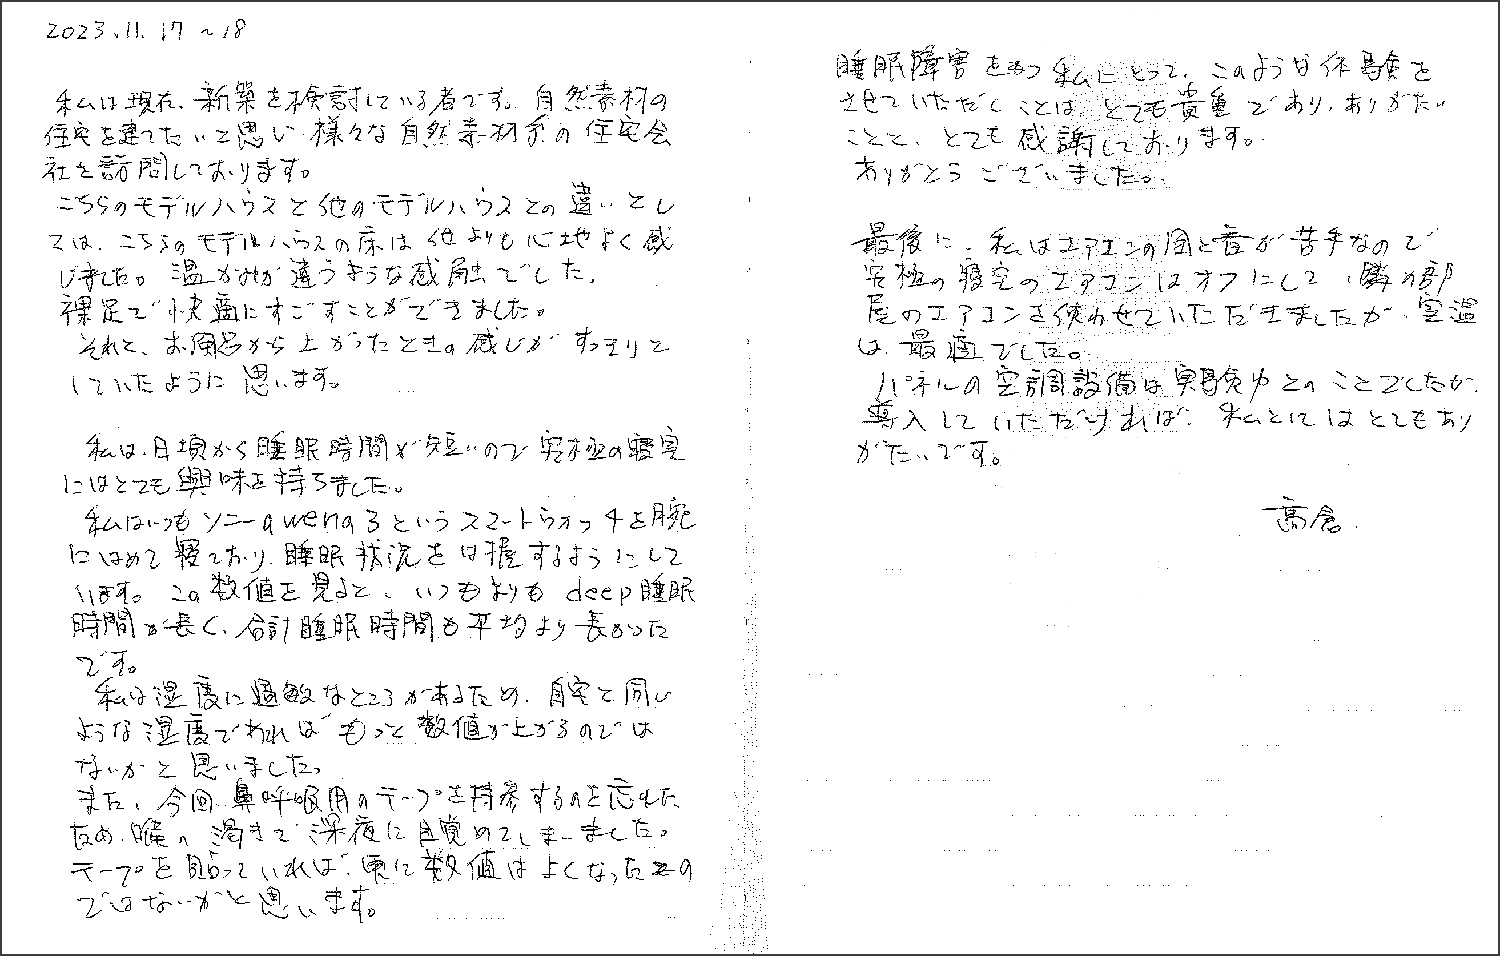 2023.11.17～18
私は現在、新築を検討している者です。自然素材の
住宅を建てたいと思い様々な自然素材系の住宅会
社を訪問しております。
こちらのモデルハウスと他のモデルハウスとの違いとし
ては、こちらのモデルハウスの床は他よりも心地よく感
じました。温かみが違うような感触でした。
裸足で快適にすごすことができました。
それと、お風呂から上がったときの感じがすっきりと
していたように思います。
私は、日頃から睡眠時間が短いので究極の寝室
にはとても興味を持ちました。
私はいつもソニーのwena3というスマートウォッチを腕
にはめて寝ており、睡眠状況を把握するようにして
います。この数値を見ると、いつもよりもdeep睡眠
時間が長く、合計睡眠時間も平均より長かった
です。
私は湿度に過敏なところがあるため、自宅と同じ
ような湿度であればもっと数値が上がるのでは
ないかと思いました。
また、今回、鼻呼吸用のテープを持参するのを忘れた
ため、喉の渇きで深夜に目覚めてしまいました。
テープを貼っていれば、更に数値はよくなったもの
ではないかと思います。
睡眠障害をもつ私にとって、このような体験を
させていただくことは、とても貴重であり、ありがたい
ことと、とても感謝しております。
ありがとうございました。
最後に、私はエアコンの風と音が苦手なので
究極の寝室のエアコンはオフにして、隣の部
屋のエアコンを使わせていただきましたが、室温
は、最適でした。
パネルの空調設備は実験中とのことでしたが、
導入していただければ、私としてはとてもあり
がたいです。
高倉